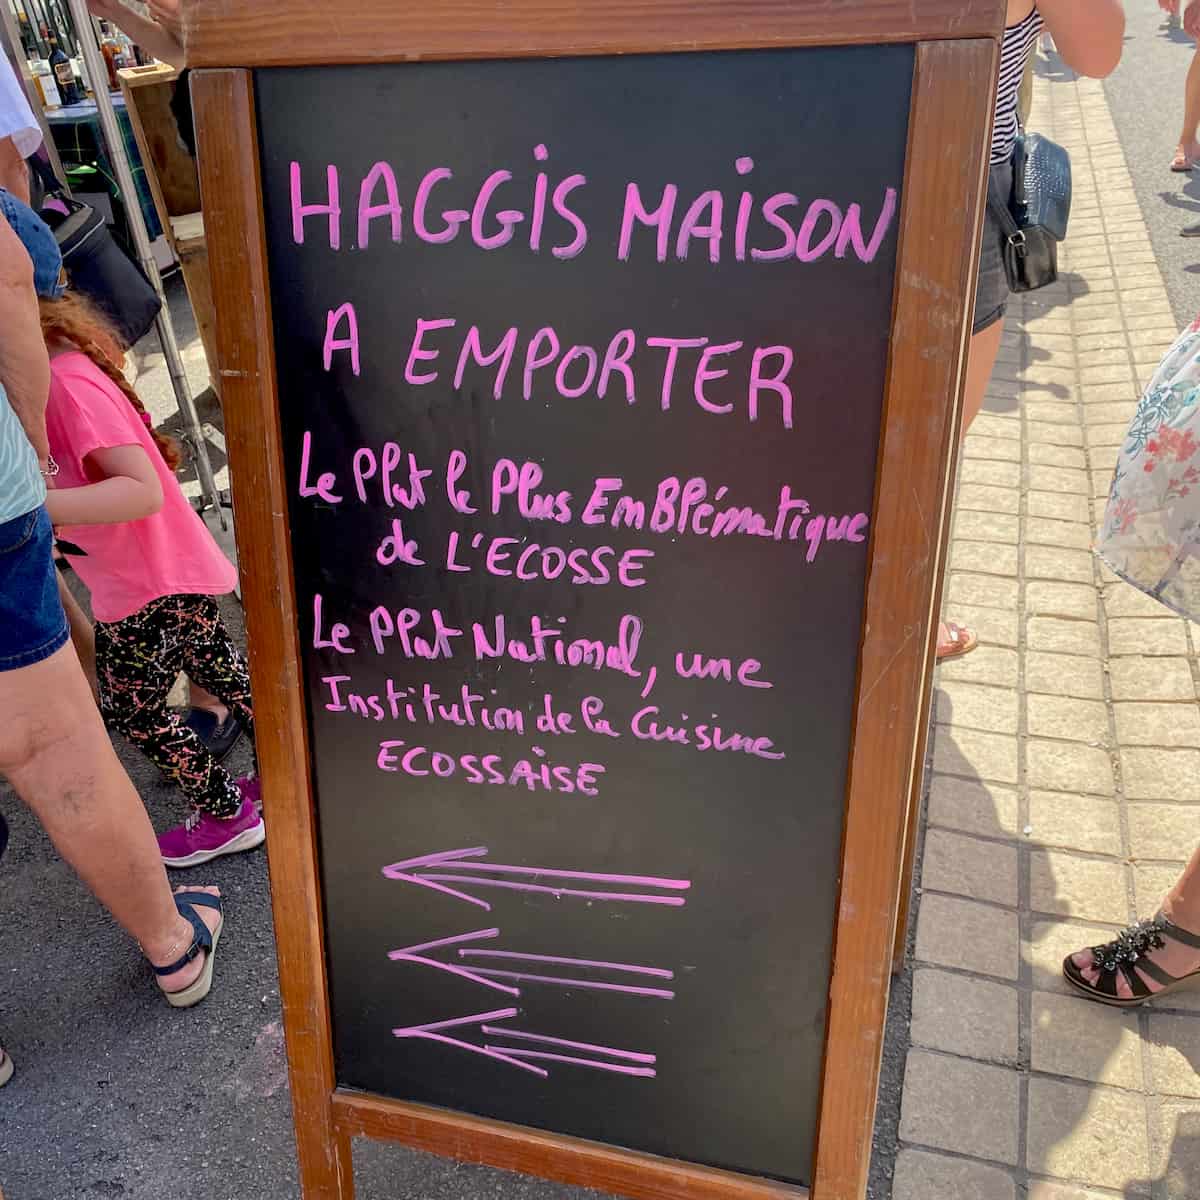 HAGGIS MAISON
A EMPORTER
Le Plat le Plus EmBlématique
de L'ECOSSE
Le Plat National, une
Institution de la Cuisine
ECOSSAISE